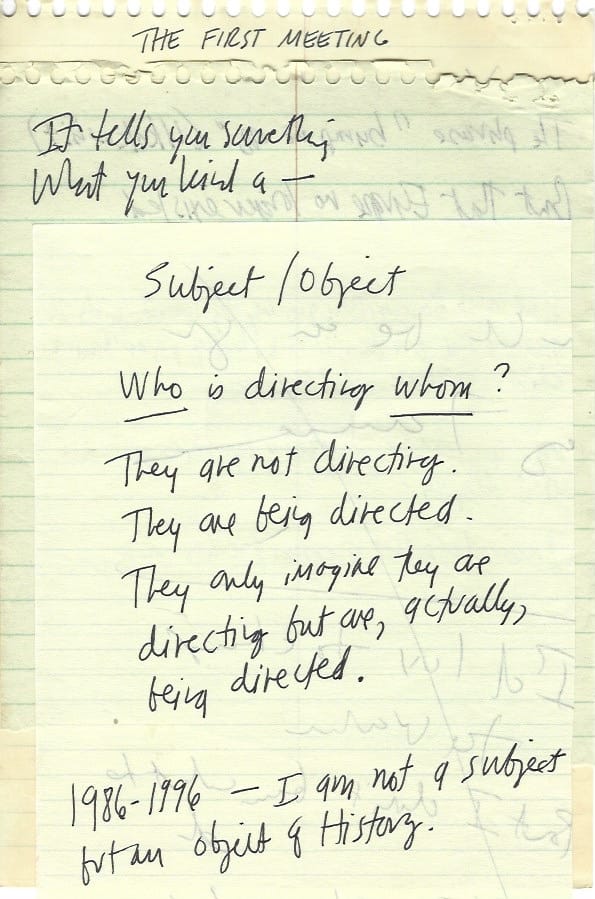 THE FIRST MEETING
It tells you something
What you kind a —
Subject / Object
Who is directing whom ?
They are not directing.
They are being directed.
They only imagine they are
directing but are, actually,
being directed.
1986-1996 — I am not a subject
but an object of History.